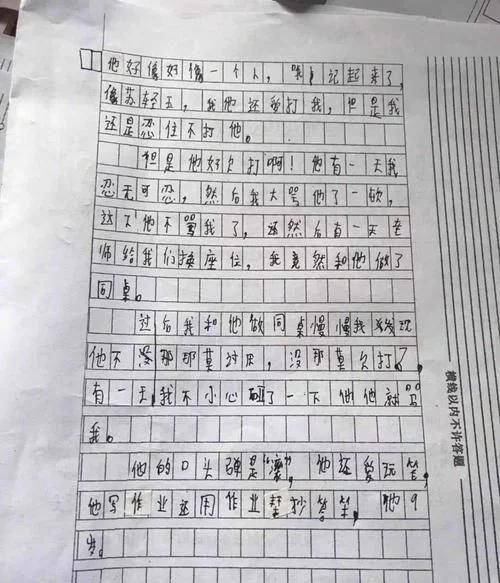 他好像好像一个人，哦！记起来了，
像苏轻五，我他还要打我，但是我
还是忍住不打他。
但是他好欠打啊！他有一天我
忍无可忍，然后我大骂他了一顿，
这下他不骂我了，然后有一天老
师给我们换座位，我竟然和他做了
同桌。
过后我和他做同桌慢慢我发现
他不没那那莫讨厌，没那莫欠打了。
有一天，我不小心碰了一下他他就骂
我。
他的口头弹是“滚”，他还爱玩笔，
他写作业还用作业帮抄答案，他9
岁。
横线以内不许答题